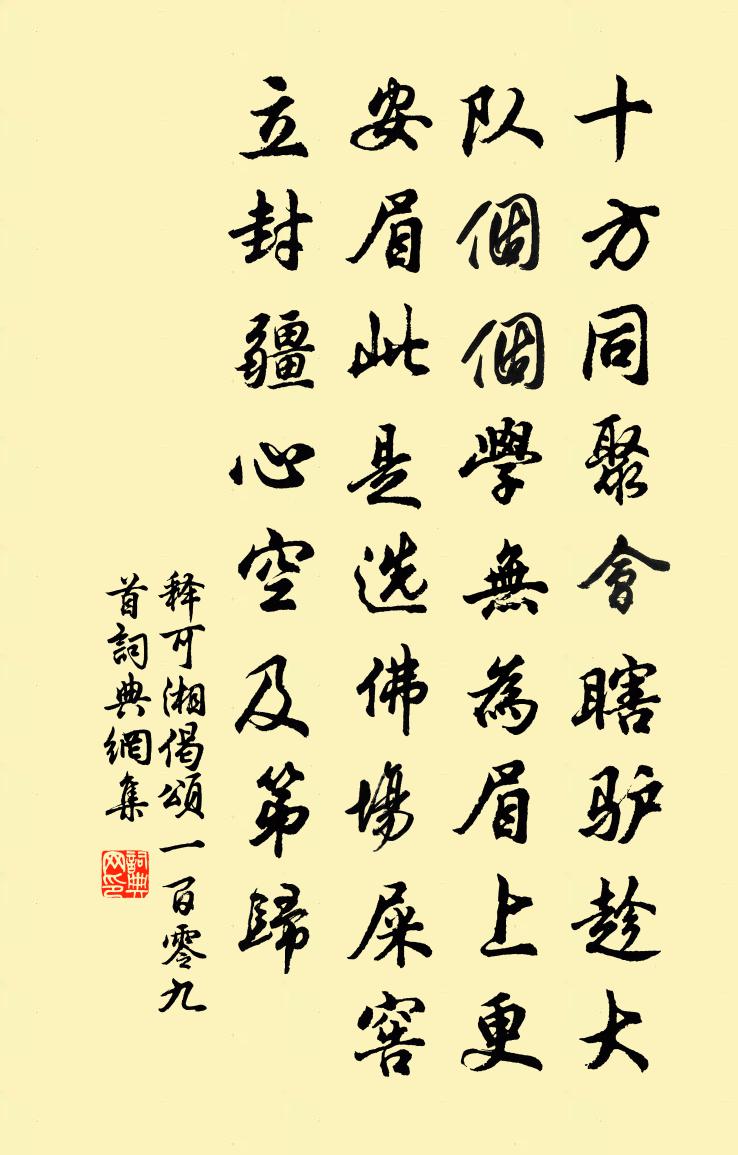 十方同聚會瞎驴趁大
队個個學無為眉上更
安眉此是选佛場屎窖
立封疆心空及第歸
释可湘偈頌一百零九
首詞典網集
詞典网印